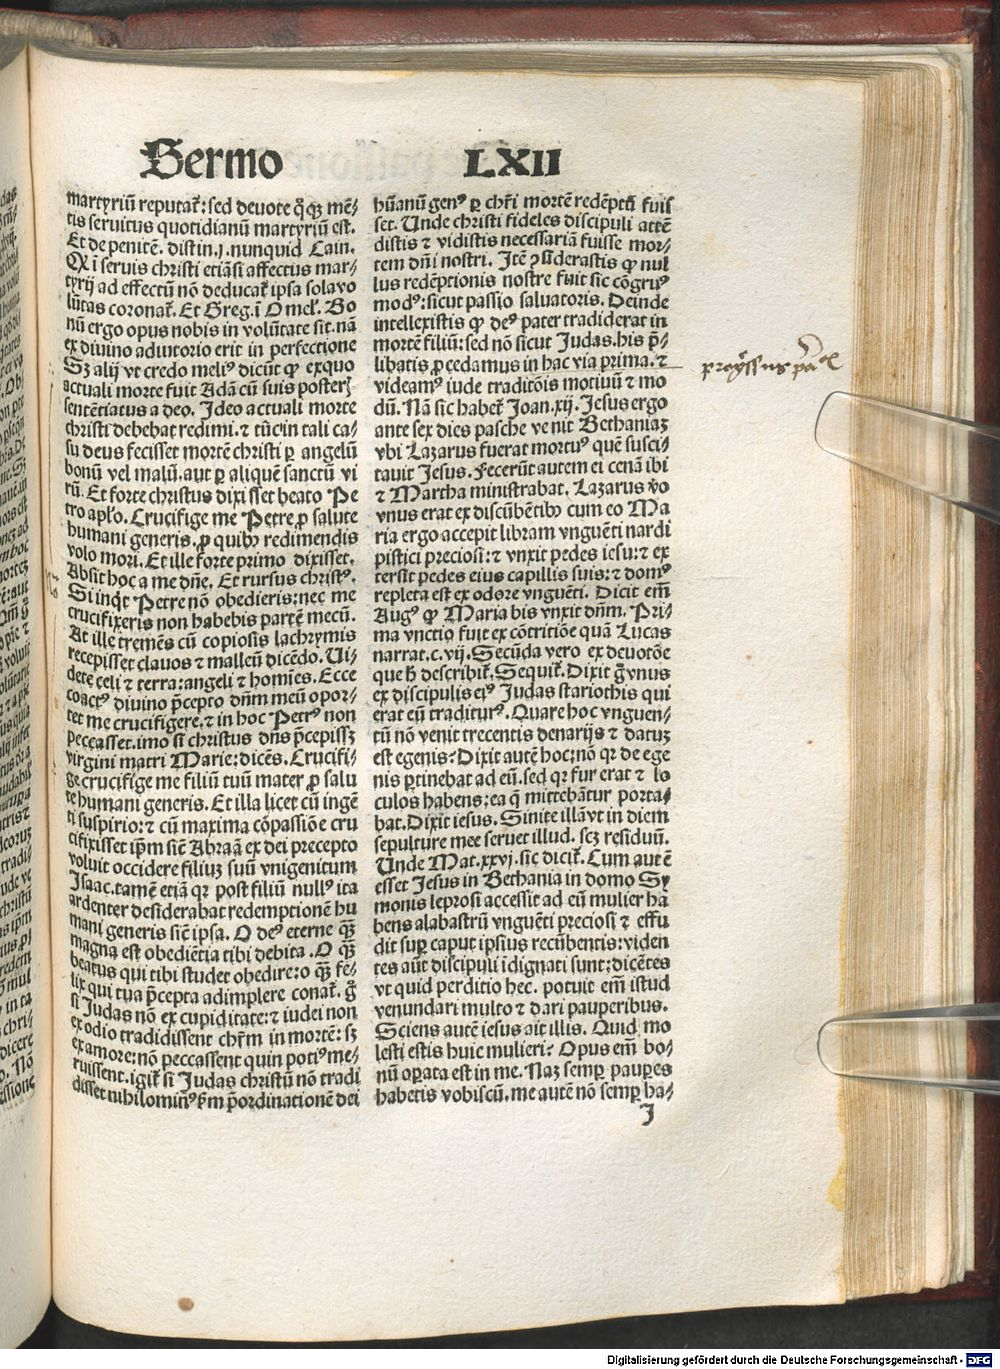 Sermo LXII
martyriū reputat᷑: sed deuote q̄q̄ʒ mē⸗
tis seruitus quotidianū martyriū est.
Et de penitē. distin.j. nunquid Cain.
Q ī seruis christi etiāsi affectus mar⸗
tyrij ad effectū nō deducat᷑ ipsa sola vo
lūtas coronat᷑. Et Greg. ī Omel᷑. Bo
nū ergo opus nobis in volūtate sit. nā
ex diuino adiutorio erit in perfectione
Sʒ alij vt credo meliꝰ dicūt ꝙ exquo
actuali morte fuit Adā cū suis posterʒ
sentētiatus a deo. Ideo actuali morte
christi debebat redimi. ⁊ tūc in tali ca⸗
su deus fecisset mortē christi ꝑ angelū
bonū vel malū. aut ꝑ aliquē sanctū vi
rū. Et forte christus dixisset beato Pe
tro apl̄o. Crucifige me Petre ꝓ salute
humani generis. ꝓ quibꝰ redimendis
volo mori. Et ille forte primo dixisset.
Absit hoc a me dn̄e. Et rursus christꝰ.
Si inq̄t Petre nō obedieris: nec me
crucifixeris non habebis partē mecū.
At ille tremēs cū copiosis lachrymis
recepisset clauos ⁊ malleū dicēdo. Ui⸗
dete celi ⁊ terra: angeli ⁊ homīes. Ecce
coactꝰ diuino p̄cepto dn̄m meū opor⸗
tet me crucifigere. ⁊ in hoc Petrꝰ non
peccasset. imo si christus dn̄s p̄cepissʒ
virgini matri Marie: dicēs. Crucifi⸗
ge crucifige me filiū tuū mater ꝓ salu
te humani generis. Et illa licet cū ingē
ti suspirio: ⁊ cū maxima cōpassiōe cru
cifixisset ip̄m siē Abraā ex dei precepto
voluit occidere filiuʒ suū vnigenitum
Isaac. tamē etiā qꝛ post filiū nullꝰ ita
ardenter desiderabat redemptionē hu
mani generis siē ipsa. O deꝰ eterne q̄ʒ
magna est obediētia tibi debita. O q̄ʒ
beatus qui tibi studet obedire: o q̄ʒ fe⸗
lix qui tua p̄cepta adimplere conat᷑. g̊
si Judas nō ex cupiditate: ⁊ iudei non
ex odio tradidissent chr̄m in mortē: sʒ
ex amore: nō peccassent quin potiꝰ me⸗
ruissent. igit᷑ si Judas christū nō tradi
disset nihilominꝰ ẜm p̄ordinationē dei
hūanū genꝰ ꝑ chr̄i mortē redēptū fuis
set. Unde christi fideles discipuli attē
distis ⁊ vidistis necessariā fuisse mor⸗
tem dn̄i nostri. Itē ꝯsiderastis ꝙ nul
lus redēptionis nostre fuit sic cōgruꝰ
modꝰ: sicut passio saluatoris. Deinde
intellexistis ꝙ deꝰ pater tradiderat in
mortē filiū: sed nō sicut Judas. his p̄⸗
libatis ꝓcedamus in hac via prima. ⁊
videamꝰ iude traditōis motiuū ⁊ mo
dū. Nā sic habet᷑ Joan.xij. Jesus ergo
ante sex dies pasche venit Bethaniaʒ
vbi Lazarus fuerat mortuꝰ quē susci⸗
tauit Jesus. Fecerūt autem ei cenā ibi
⁊ Martha ministrabat. Lazarus ꝟo
vnus erat ex discūbētibꝰ cum eo Ma
ria ergo accepit libram vnguēti nardi
pistici preciosi: ⁊ vnxit pedes iesu: ⁊ ex
tersit pedes eius capillis suis: ⁊ domꝰ
repleta est ex odore vnguēti. Dicit em̄
Augꝰ ꝙ Maria bis vnxit dn̄m. Pri⸗
ma vnctio fuit ex cōtritiōe quā Lucas
narrat. c.vij. Secūda vero ex deuotōe
que ħ describit᷑. Sequit᷑. Dixit g̊ vnus
ex discipulis eiꝰ Judas stariothis qui
erat eū traditurꝰ. Quare hoc vnguen⸗
tū nō venit trecentis denarijs ⁊ datuʒ
est egenis? Dixit autē hoc; nō qꝛ de ege
nis ꝑtinebat ad eū. sed qꝛ fur erat ⁊ lo
culos habens; ea q̄ mittebātur porta⸗
bat. Dixit iesus. Sinite illā vt in diem
sepulture mee seruet illud. scʒ residuū.
Unde Mat.xxvj. sic dicit᷑. Cum autē
esset Jesus in Bethania in domo Sy
monis leprosi accessit ad eū mulier ha
bens alabastrū vnguēti preciosi ⁊ effu
dit suꝑ caput ipsius recūbentis: viden
tes aūt discipuli īdignati sunt: dicētes
vt quid perditio hec. potuit em̄ istud
venundari multo ⁊ dari pauperibus.
Sciens autē iesus ait illis. Quid mo
lesti estis huic mulieri? Opus em̄ bo⸗
nū oꝑata est in me. Naʒ semꝑ pauꝑes
habetis vobiscū. me autē nō semꝑ ha⸗
J
Digitalisierung gefördert durch die Deutsche Forschungsgemeinschaft - DFG